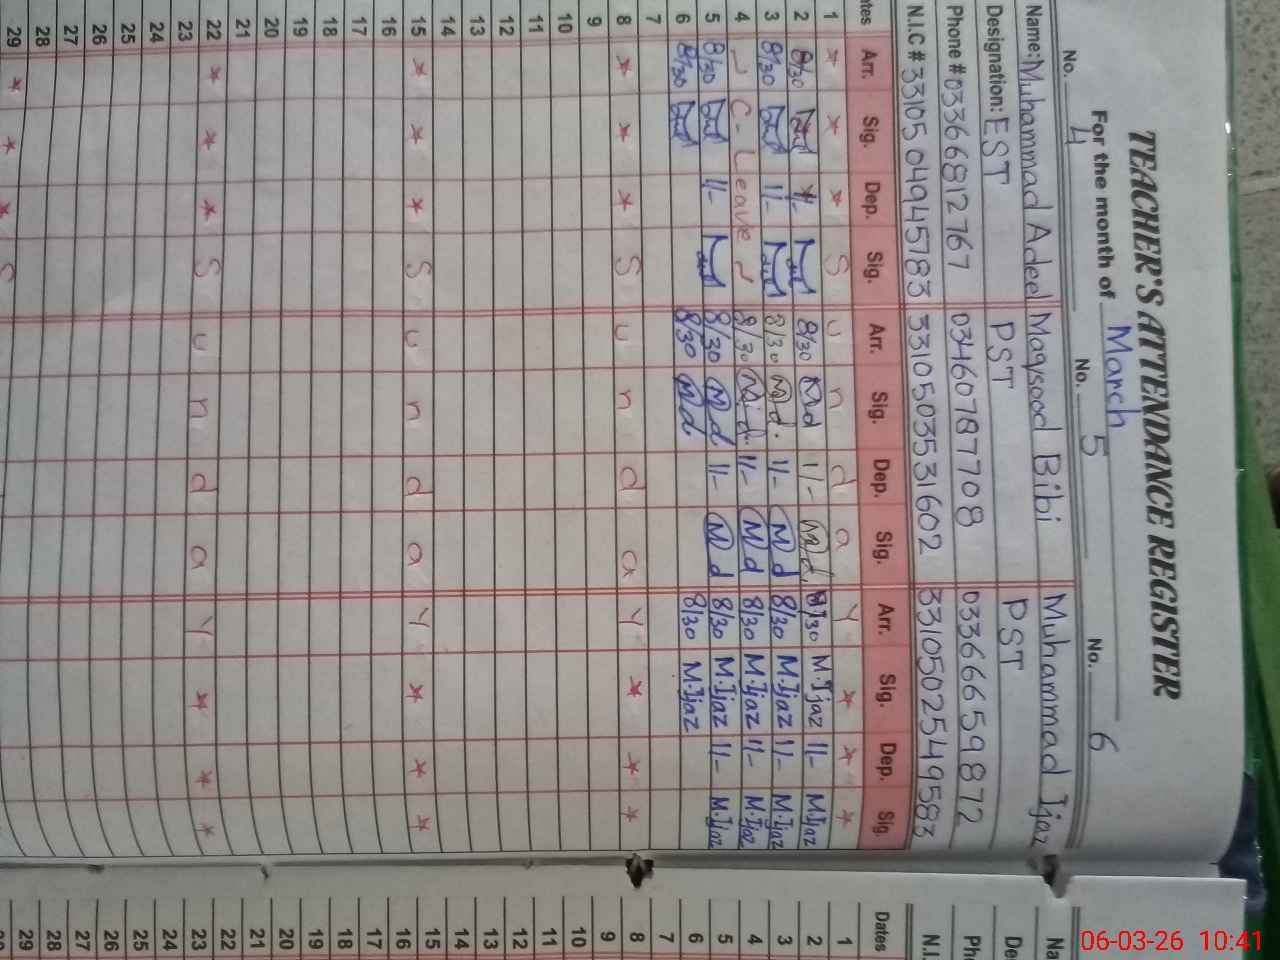 TEACHER'S ATTENDANCE REGISTER
For the month of March
No. 4 No. 5 No. 6
Name: Muhammad Adeel Maqsood Bibi Muhammad Ijaz
Designation: EST PST PST
Phone # 03366812767 03460787708 03366659872
N.I.C # 3310504945783 3310503531602 3310502549583
Arr. Sig. Dep. Sig. Arr. Sig. Dep. Sig. Arr. Sig. Dep. Sig.
1 * * * S u n d a y * * *
2 8/30 11/- 8/30 Md 11/- Md 8/30 M.Ijaz 11/- M.Ijaz
3 8/30 11/- 8/30 Md. 11/- Md 8/30 M.Ijaz 11/- M.Ijaz
4 C- Leave 8/30 Md. 11/- Md 8/30 M.Ijaz 11/- M.Ijaz
5 8/30 11/- 8/30 Md 11/- Md 8/30 M.Ijaz 11/- M.Ijaz
6 8/30 8/30 Md 8/30 M.Ijaz
7
8 * * * S u n d a y * * *
9
10
11
12
13
14
15 * * * S u n d a y * * *
16
17
18
19
20
21
22 * * * S u n d a y * * *
23
24
25
26
27
28
29 * * * S
Dates
1
2
3
4
5
6
7
8
9
10
11
12
13
14
15
16
17
18
19
20
21
22
23
24
25
26
27
28
29
06-03-26 10:41